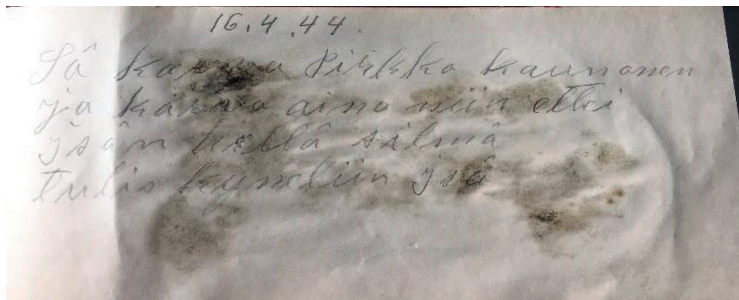 16.4.44.
Sä kasva Pirkko kaunonen
ja kasva aina niin ettei
isän hellä silmä
tulis kyneliin isä